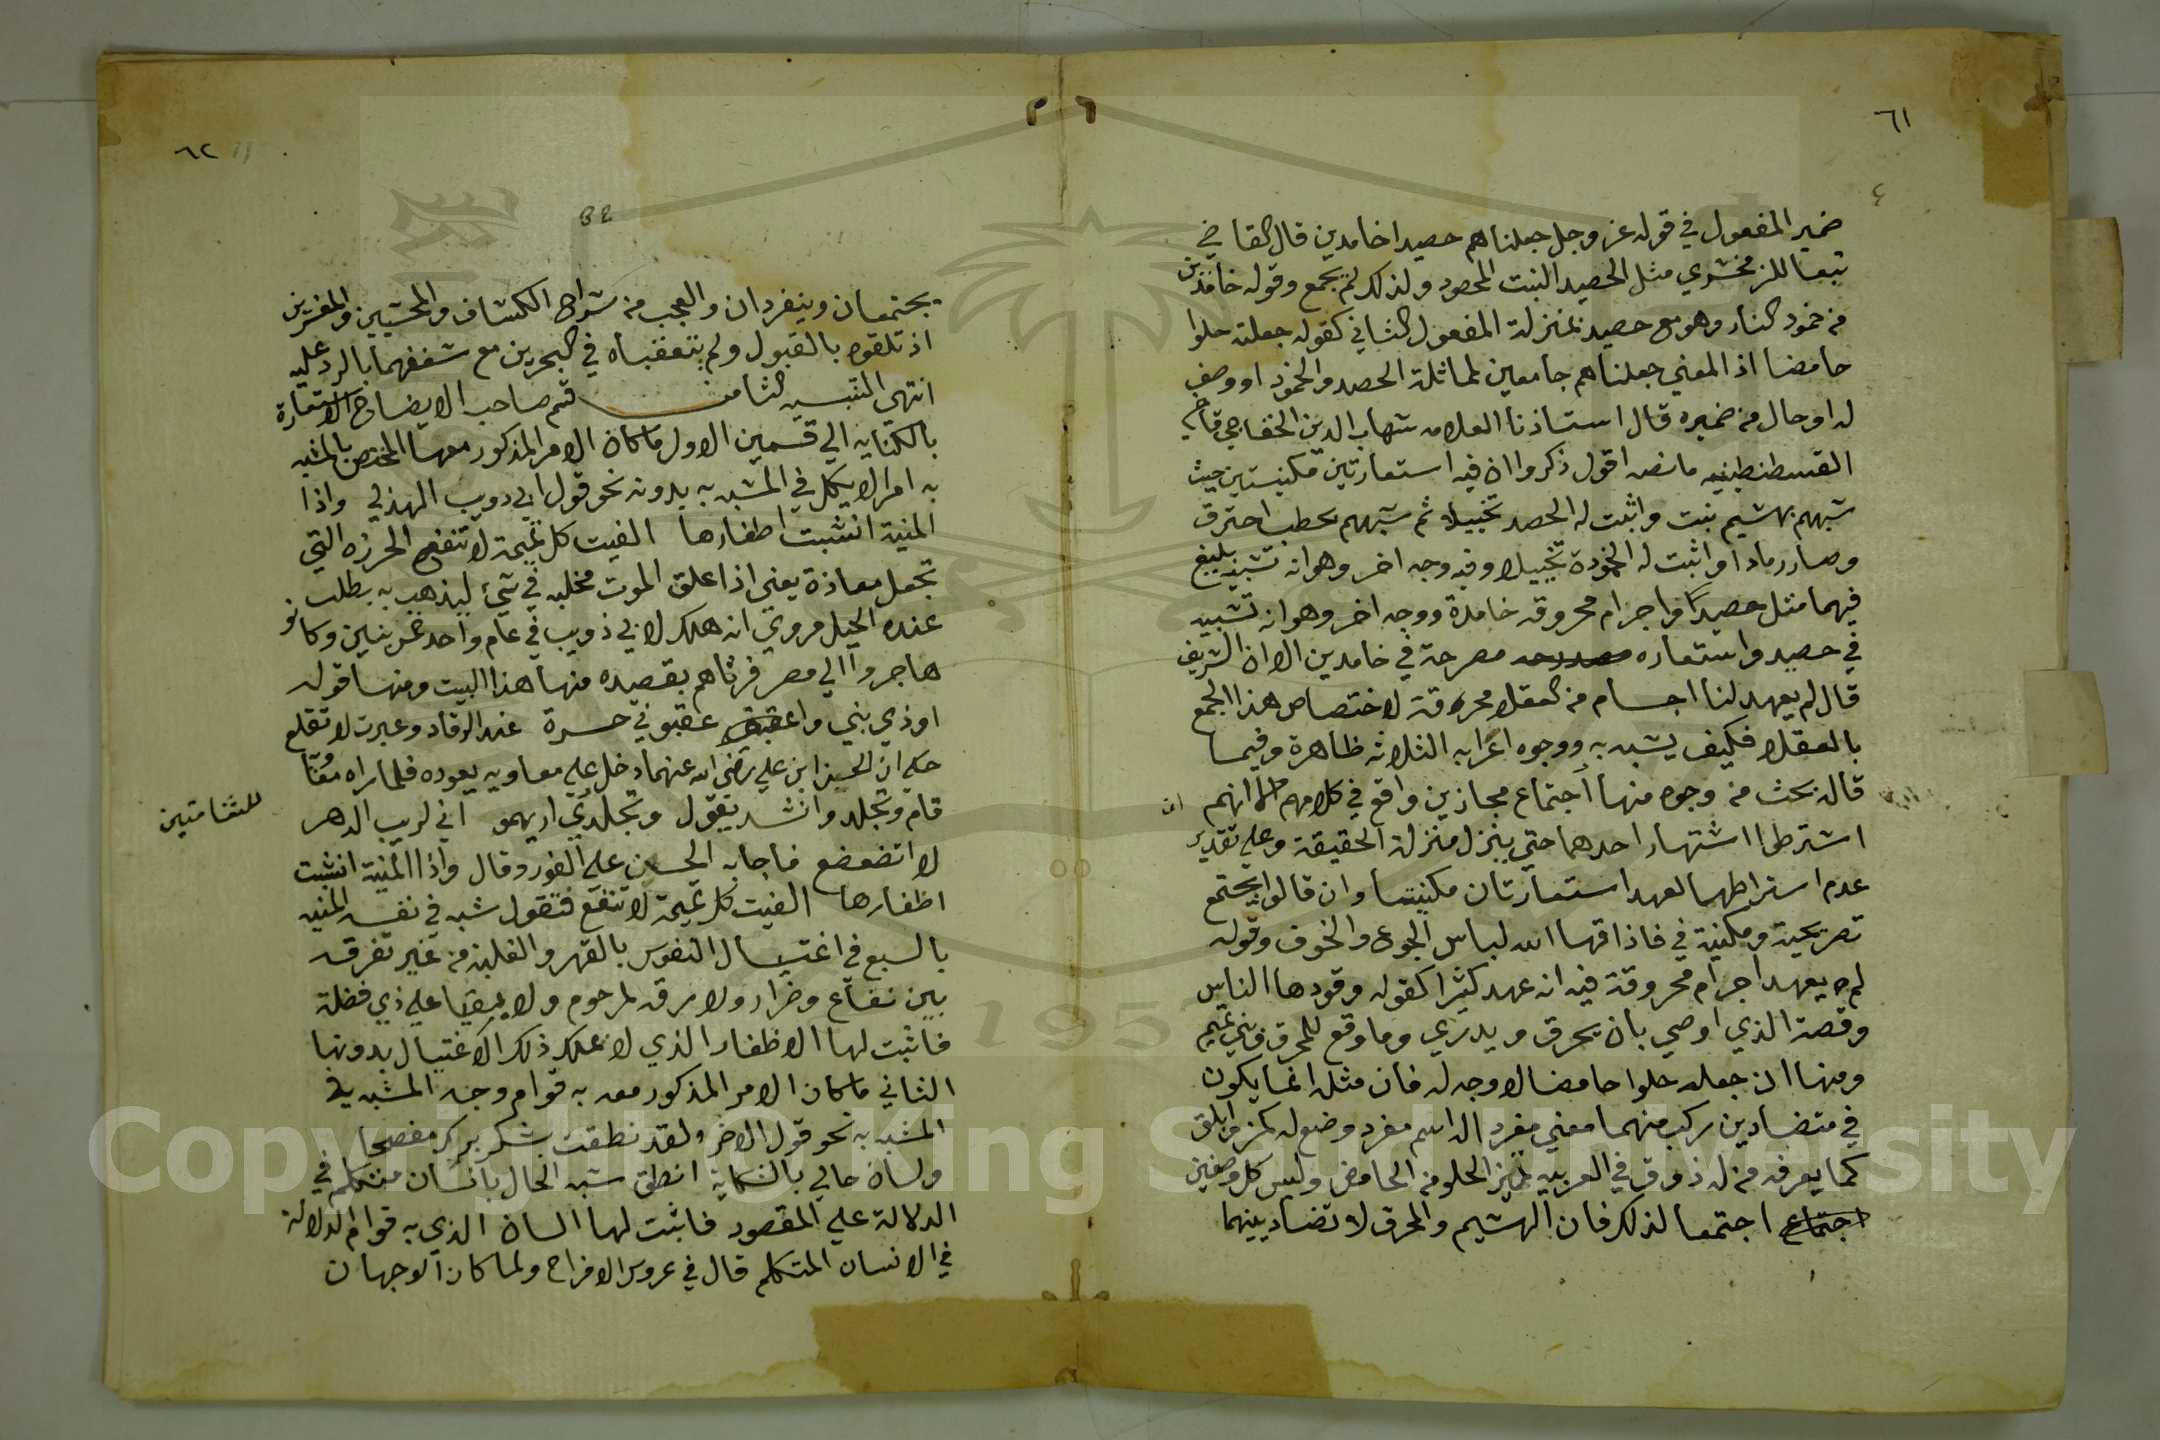 ٦١
ضمير المفعول في قوله عز وجل جعلناهم حصيدا خامدين قال القاضي
تبعا للزمخشري مثل الحصيد النبت المحصود ولذلك لم يجمع وقوله خامدين
من خمود النار وهو مع حصيد بمنزلة المفعول الثاني كقوله جعلته حلوا
حامضا اذ المعني جعلناهم جامعين لماثلة الحصد والخمود او وصف
له او حال من ضميره قال استاذنا العلامه شهاب الدين الخفاجي قاضي
القسطنطينيه ما نصه اقول ذكروا ان فيه استعارتين مكنيتين حيث
شبههم بهشيم بنت واثبت له الحصد تخييلا ثم شبههم بحطب احترق
وصار رمادا واثبت له الخمودة تخييلا وفيه وجه اخر وهو انه تشبيه بليغ
فيهما مثل حصيدا واجرام محروقه خامدة ووجه اخر وهو انه تشبيه
في حصيد واستعاره مصرحة في خامدين الا ان الشريف
قال لم يعهد لنا اجسام من العقلا محروقة لاختصاص هذا الجمع
بالعقلا فكيف يشبه به ووجوه اعرابه الثلاثه ظاهرة وفيما
قاله بحث من وجوه منها اجتماع مجازين واقع في كلامهم الا انهم
اشترطوا اشتهار احدهما حتي ينزل منزلة الحقيقة وعلي تقدير
عدم اشتراطهما لعهد استعارتان مكنيتا وان قالوا يجتمع
تصريحية ومكنية في فاذاقها الله لباس الجوع والخوف وقوله
لم يعهد اجرام محروقة فيه انه عهد كثيرا كقوله وقودها الناس
وقصة الذي اوصي بان يحرق ويدري وما وقع للمحرق في بني تميم
ومنها ان جعله حلوا حامضا لا وجه له فان مثله انما يكون
في متضادين ركب منهما معني مفرد اله اسم مفرد وضع له كمز وابلق
كما يعرفه من له ذوق في العربيه تميز الحلو من الحامض وليس كل وصفين
اجتماع اجتمعا لذلك فان الهشيم والمحرق لا تضاد بينهما
٦٢
يجتمعان وينفردان والعجب من شراح الكشاف والمحشيين والمفسرين
اذ تلقوه بالقبول ولم يتعقباه في البحرين مع شغفهما بالرد عليه
انتهي التنبيه الثامن قسم صاحب الايضاح الاستعارة
بالكنايه الي قسمين الاول ما كان الامر المذكور معها المختص بالمشبه
به امرا لا يكمل في المشبه به بدونه نحو قول ابي دويب الهذلي واذا
المنية انشبت اظفارها الفيت كل تميمة لا تنفع الخرزه التي
تجعل معاذة يعني اذا علق الموت مخلبه في شيء ليذهب به بطلت
عنده الحيل مروي انه هلك لابي ذويب في عام واحد خمس بنين وكانو
هاجروا الي مصر فرثاهم بقصيده منها هذا البيت ومنها قوله
اوذي بني واعقبوني حسرة عند الرقاد وعبرت لا تقلع
حكي ان الحسن ابن علي رضي الله عنهما دخل علي معاويه يعوده فلما راه
قام وتجلد وانشد يقول وتجلدي اريهمو اني لريب الدهر
للشامتين
لا اتضعضع فاجابه الحسن علي الفور وقال واذا المنية انشبت
اظفارها الفيت كل تميمة لا تنفع فتقول شبه في نفسه المنيه
بالسبع في اغتيال النفوس بالقهر والغلبة من غير تفرقه
بين نفاع وضرار ولا مرق لمرحوم ولا يبقيا علي ذي فضلة
فاثبت لها الاظفار الذي لا يملك ذلك الاغتيال بدونها
الثاني ما كان الامر المذكور معه به قوام وجه المشبه في
المشبه به نحو قول الاخر ولقد نطقت بشكر برك مفصحا
ولسان حالي بالشكاية انطق شبه الحال بانسان متكلم في
الدلالة علي المقصود فاثبت لها السان الذي به قوام الدلالة
في الانسان المتكلم قال في عروس الافراح ولما كان الوجهان
Copyright © King Saud University
1957